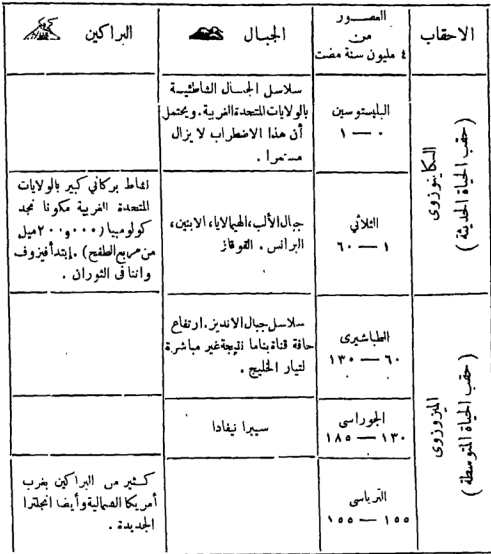 الاحقاب
العصور
من
٤ مليون سنة مضت
الجبال
البراكين
(حقب الحياة الحديثة)
السكاينوزوى
البليستوسين
٠ — ١
سلاسل الجبال الشاطئية
بالولايات المتحدة الغربية. ويحتمل
أن هذا الاضطراب لا يزال
مستمرا .
الثلاثي
١ — ٦٠
جبال الألب، الهيمالايا، الابنين،
البرانس . القوقاز
نشاط بركاني كبير بالولايات
المتحدة الغربية مكونا نجد
كولومبيا (٢٠٠و٠٠٠ ميل
من مربع الطفح) . إبتدأ فيزوف
واتنا فى الثوران .
(حقب الحياة المتوسطة)
الميزوزوى
الطباشيرى
٦٠ — ١٣٠
سلاسل جبال الانديز . ارتفاع
حافة قناة بناما نتيجة غير مباشرة
لتيار الخليج .
الجوراسى
١٣٠ — ١٨٥
سييرا نيفادا
الترياسى
١٥٥ — ١٥٥
كثير من البراكين بغرب
أمريكا الشمالية وأيضا انجلترا
الجديدة .